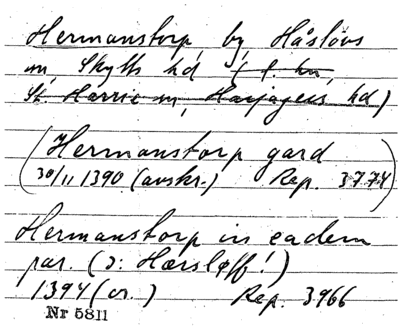 Hermanstorp, by, Håslövs
sn, Skytts hd (f. hn,
St. Harrie sn, Harjagers hd)
(Hermanstorp gard
30/11 1390 (avskr.) Rep. 3774)
Hermanstorp in eadem
par. (ɔ: Hærsløff!)
1394 (or.) Rep. 3966
Nr 5811